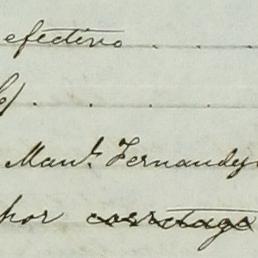 efectivo . . .
Manl. Fernandez
por corretage